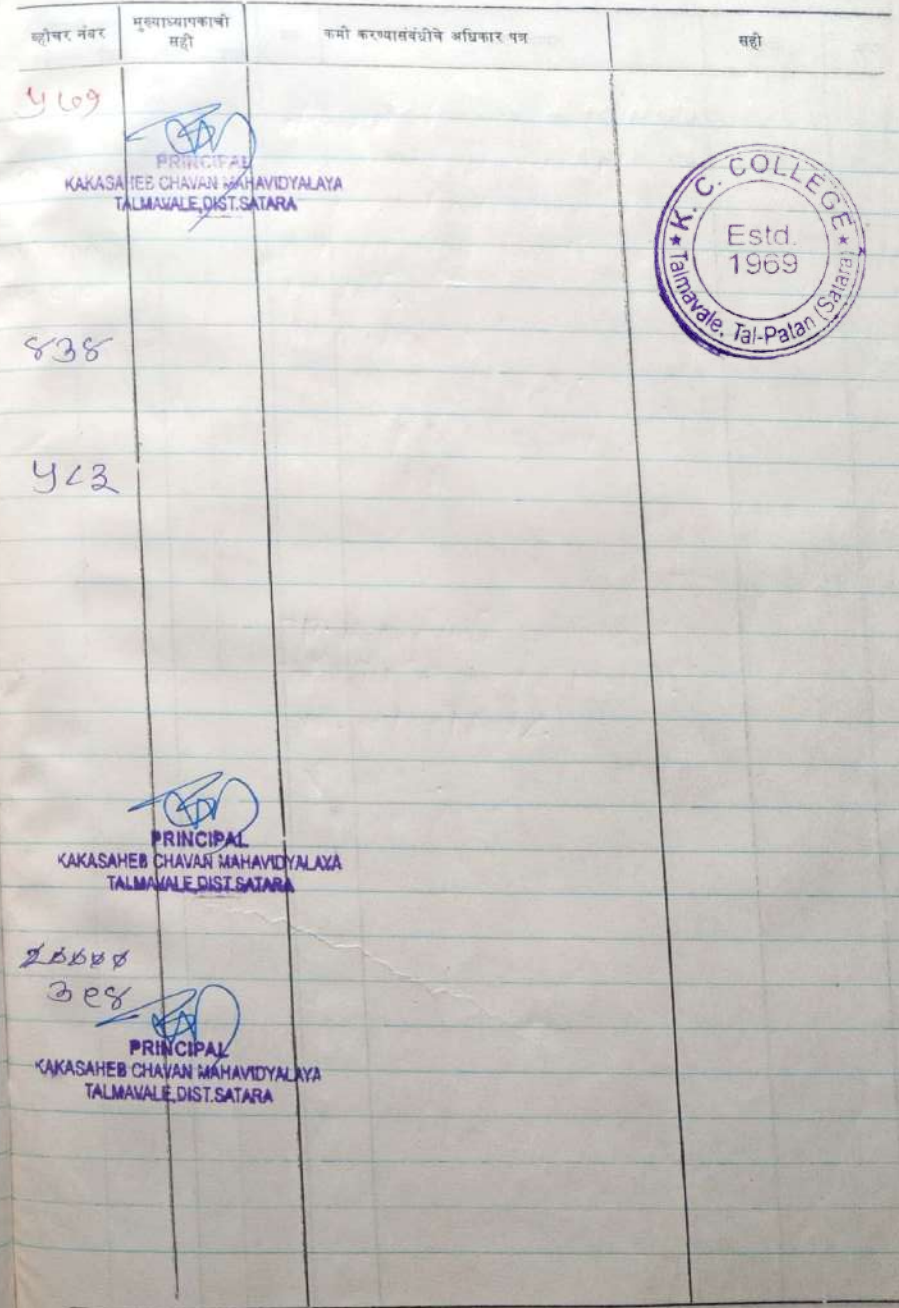 व्हौचर नंबर
मुख्याध्यापकाची सही
कमी करण्यासंबंधीचे अधिकार पत्र
सही
५७१
PRINCIPAL
KAKASAHEB CHAVAN MAHAVIDYALAYA
TALMAVALE,DIST.SATARA
★ K. C. COLLEGE ★
Estd.
1969
Talmavale, Tal-Patan (Satara)
४३४
५८३
PRINCIPAL
KAKASAHEB CHAVAN MAHAVIDYALAYA
TALMAVALE,DIST.SATARA
३९४
PRINCIPAL
KAKASAHEB CHAVAN MAHAVIDYALAYA
TALMAVALE,DIST.SATARA